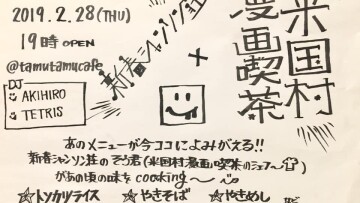 2019.2.28(THU)
19時OPEN
@tamutamucafe
DJ
AKIHIRO
TETRIS
新春シャンソン荘
×
米国村
漫画喫茶
あのメニューが今ココによみがえる!!
新春シャンソン荘のそう君(米国村漫画喫茶のシェフ〜)
があの頃の味をcooking〜
☆トンカツライス ☆やきそば ☆やきめし